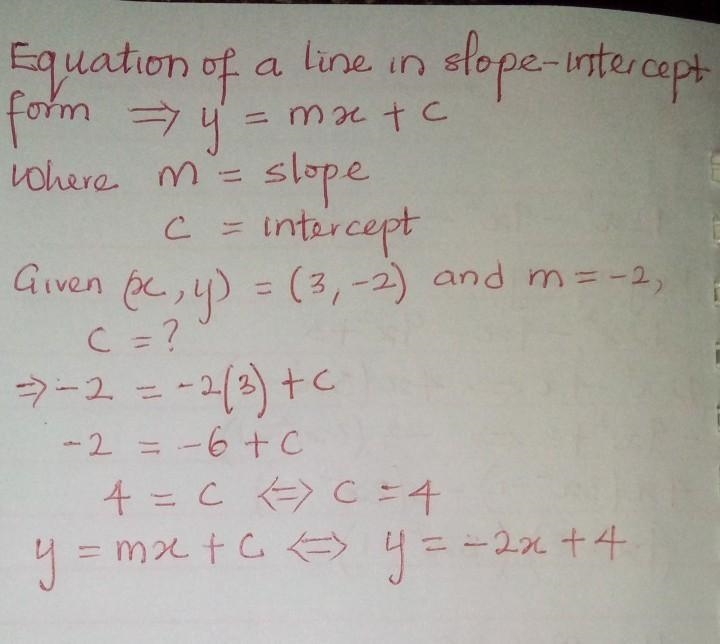 Equation of a line in slope-intercept
form ⇒ y = mx + c
Where m = slope
c = intercept
Given (x, y) = (3, -2) and m = -2,
c = ?
⇒ -2 = -2(3) + c
-2 = -6 + c
4 = c ⇔ c = 4
y = mx + c ⇔ y = -2x + 4